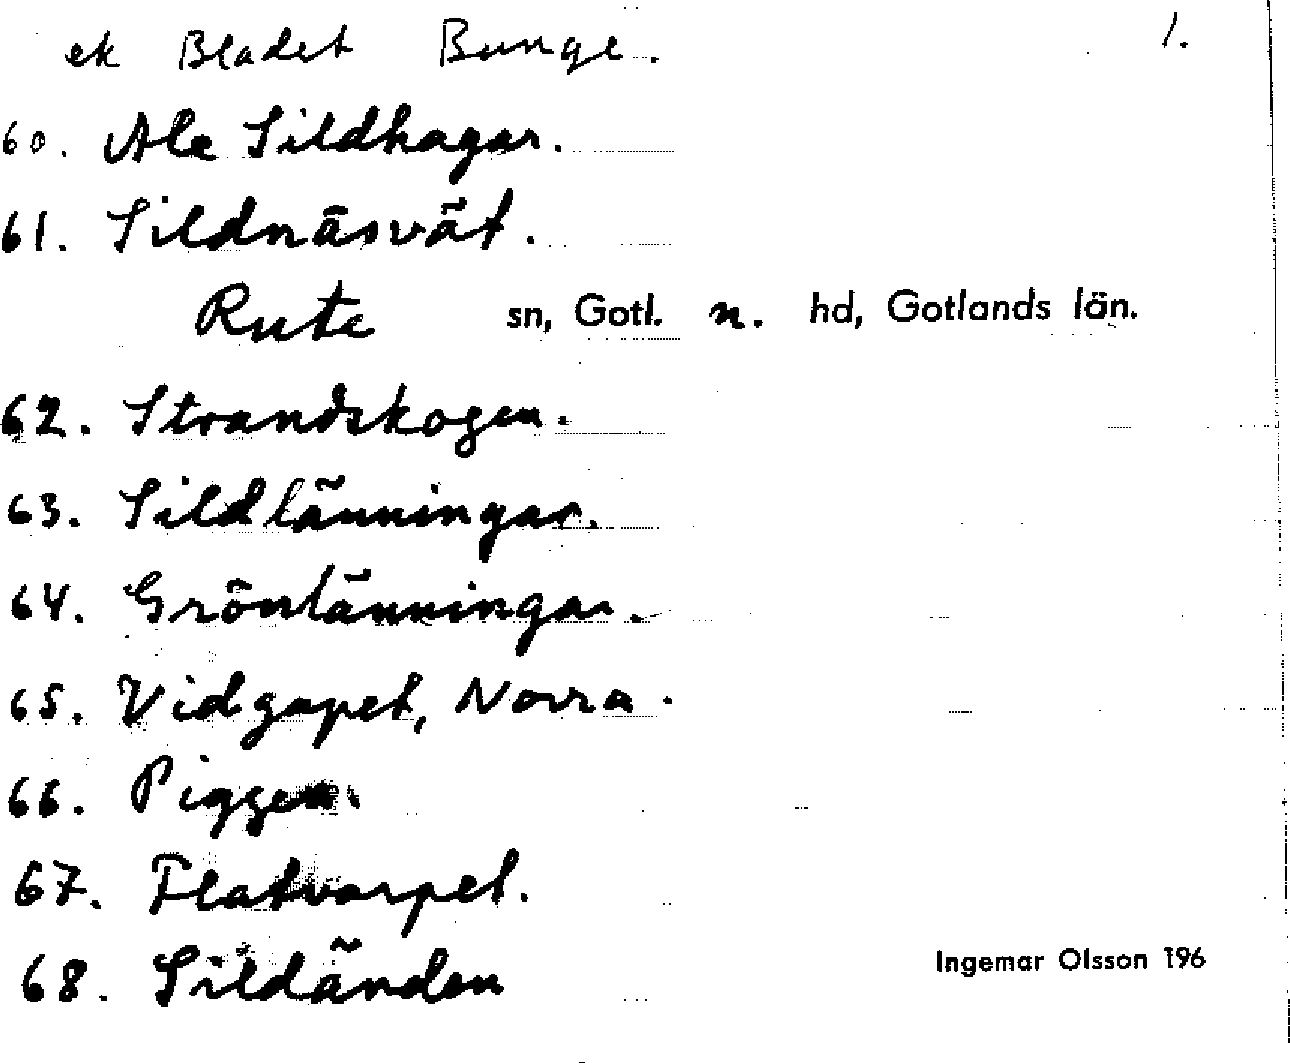 ek Bladet Bunge. 1.
60. Ale Sildhagar.
61. Sildnäsvät.
Rute sn, Gotl. n. hd, Gotlands län.
62. Strandskogen.
63. Sildlänningar.
64. Grönlänningar.
65. Vidgapet, Norra.
66. Piggen.
67. Flatvarpet.
68. Sildänden
Ingemar Olsson 196